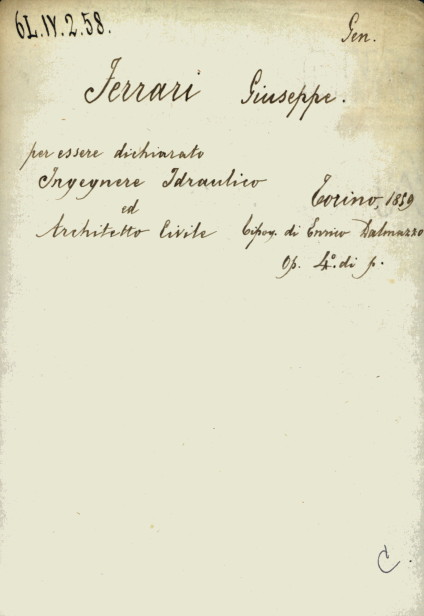 6L.IV.2.58.
Gen.
Ferrari Giuseppe.
per essere dichiarato
Ingegnere Idraulico
ed
Architetto Civile
Torino, 1859
Tipog. di Enrico Dalmazzo
Op. 4º. di p.
C.